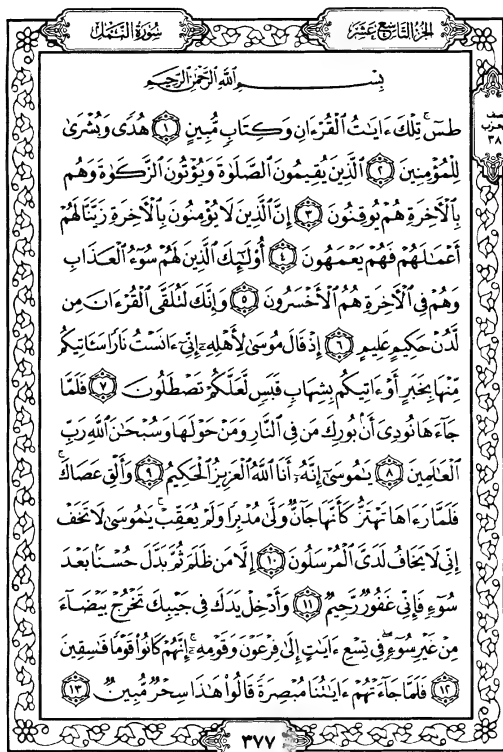 الجزء التاسع عشر
سورة النمل
بِسْمِ اللَّهِ الرَّحْمَٰنِ الرَّحِيمِ
طسٓ ۚ تِلْكَ ءَايَٰتُ ٱلْقُرْءَانِ وَكِتَابٍ مُّبِينٍ ١ هُدًى وَبُشْرَىٰ
لِلْمُؤْمِنِينَ ٢ ٱلَّذِينَ يُقِيمُونَ ٱلصَّلَوٰةَ وَيُؤْتُونَ ٱلزَّكَوٰةَ وَهُم
بِٱلْءَاخِرَةِ هُمْ يُوقِنُونَ ٣ إِنَّ ٱلَّذِينَ لَا يُؤْمِنُونَ بِٱلْءَاخِرَةِ زَيَّنَّا لَهُمْ
أَعْمَٰلَهُمْ فَهُمْ يَعْمَهُونَ ٤ أُو۟لَٰٓئِكَ ٱلَّذِينَ لَهُمْ سُوٓءُ ٱلْعَذَابِ
وَهُمْ فِى ٱلْءَاخِرَةِ هُمُ ٱلْأَخْسَرُونَ ٥ وَإِنَّكَ لَتُلَقَّى ٱلْقُرْءَانَ مِن
لَّدُنْ حَكِيمٍ عَلِيمٍ ٦ إِذْ قَالَ مُوسَىٰ لِأَهْلِهِۦٓ إِنِّىٓ ءَانَسْتُ نَارًا سَـَٔاتِيكُم
مِّنْهَا بِخَبَرٍ أَوْ ءَاتِيكُم بِشِهَابٍ قَبَسٍ لَّعَلَّكُمْ تَصْطَلُونَ ٧ فَلَمَّا
جَآءَهَا نُودِىَ أَنۢ بُورِكَ مَن فِى ٱلنَّارِ وَمَنْ حَوْلَهَا وَسُبْحَٰنَ ٱللَّهِ رَبِّ
ٱلْعَٰلَمِينَ ٨ يَٰمُوسَىٰٓ إِنَّهُۥٓ أَنَا ٱللَّهُ ٱلْعَزِيزُ ٱلْحَكِيمُ ٩ وَأَلْقِ عَصَاكَ ۚ
فَلَمَّا رَءَاهَا تَهْتَزُّ كَأَنَّهَا جَآنٌّ وَلَّىٰ مُدْبِرًا وَلَمْ يُعَقِّبْ ۚ يَٰمُوسَىٰ لَا تَخَفْ
إِنِّى لَا يَخَافُ لَدَىَّ ٱلْمُرْسَلُونَ ١٠ إِلَّا مَن ظَلَمَ ثُمَّ بَدَّلَ حُسْنًۢا بَعْدَ
سُوٓءٍ فَإِنِّى غَفُورٌ رَّحِيمٌ ١١ وَأَدْخِلْ يَدَكَ فِى جَيْبِكَ تَخْرُجْ بَيْضَآءَ
مِنْ غَيْرِ سُوٓءٍ ۖ فِى تِسْعِ ءَايَٰتٍ إِلَىٰ فِرْعَوْنَ وَقَوْمِهِۦٓ ۚ إِنَّهُمْ كَانُوا۟ قَوْمًا فَٰسِقِينَ
١٢ فَلَمَّا جَآءَتْهُمْ ءَايَٰتُنَا مُبْصِرَةً قَالُوا۟ هَٰذَا سِحْرٌ مُّبِينٌ ١٣
٣٧٧
٣٨